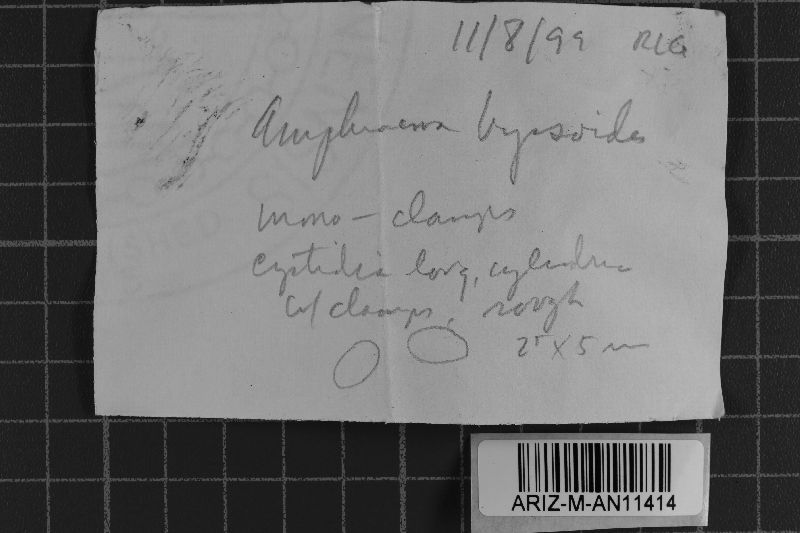 11/8/99 RLG
Amphinema byssoides
mono - clamps
cystidia long, cylindric
w/ clamps, rough
5 m
ARIZ-M-AN11414